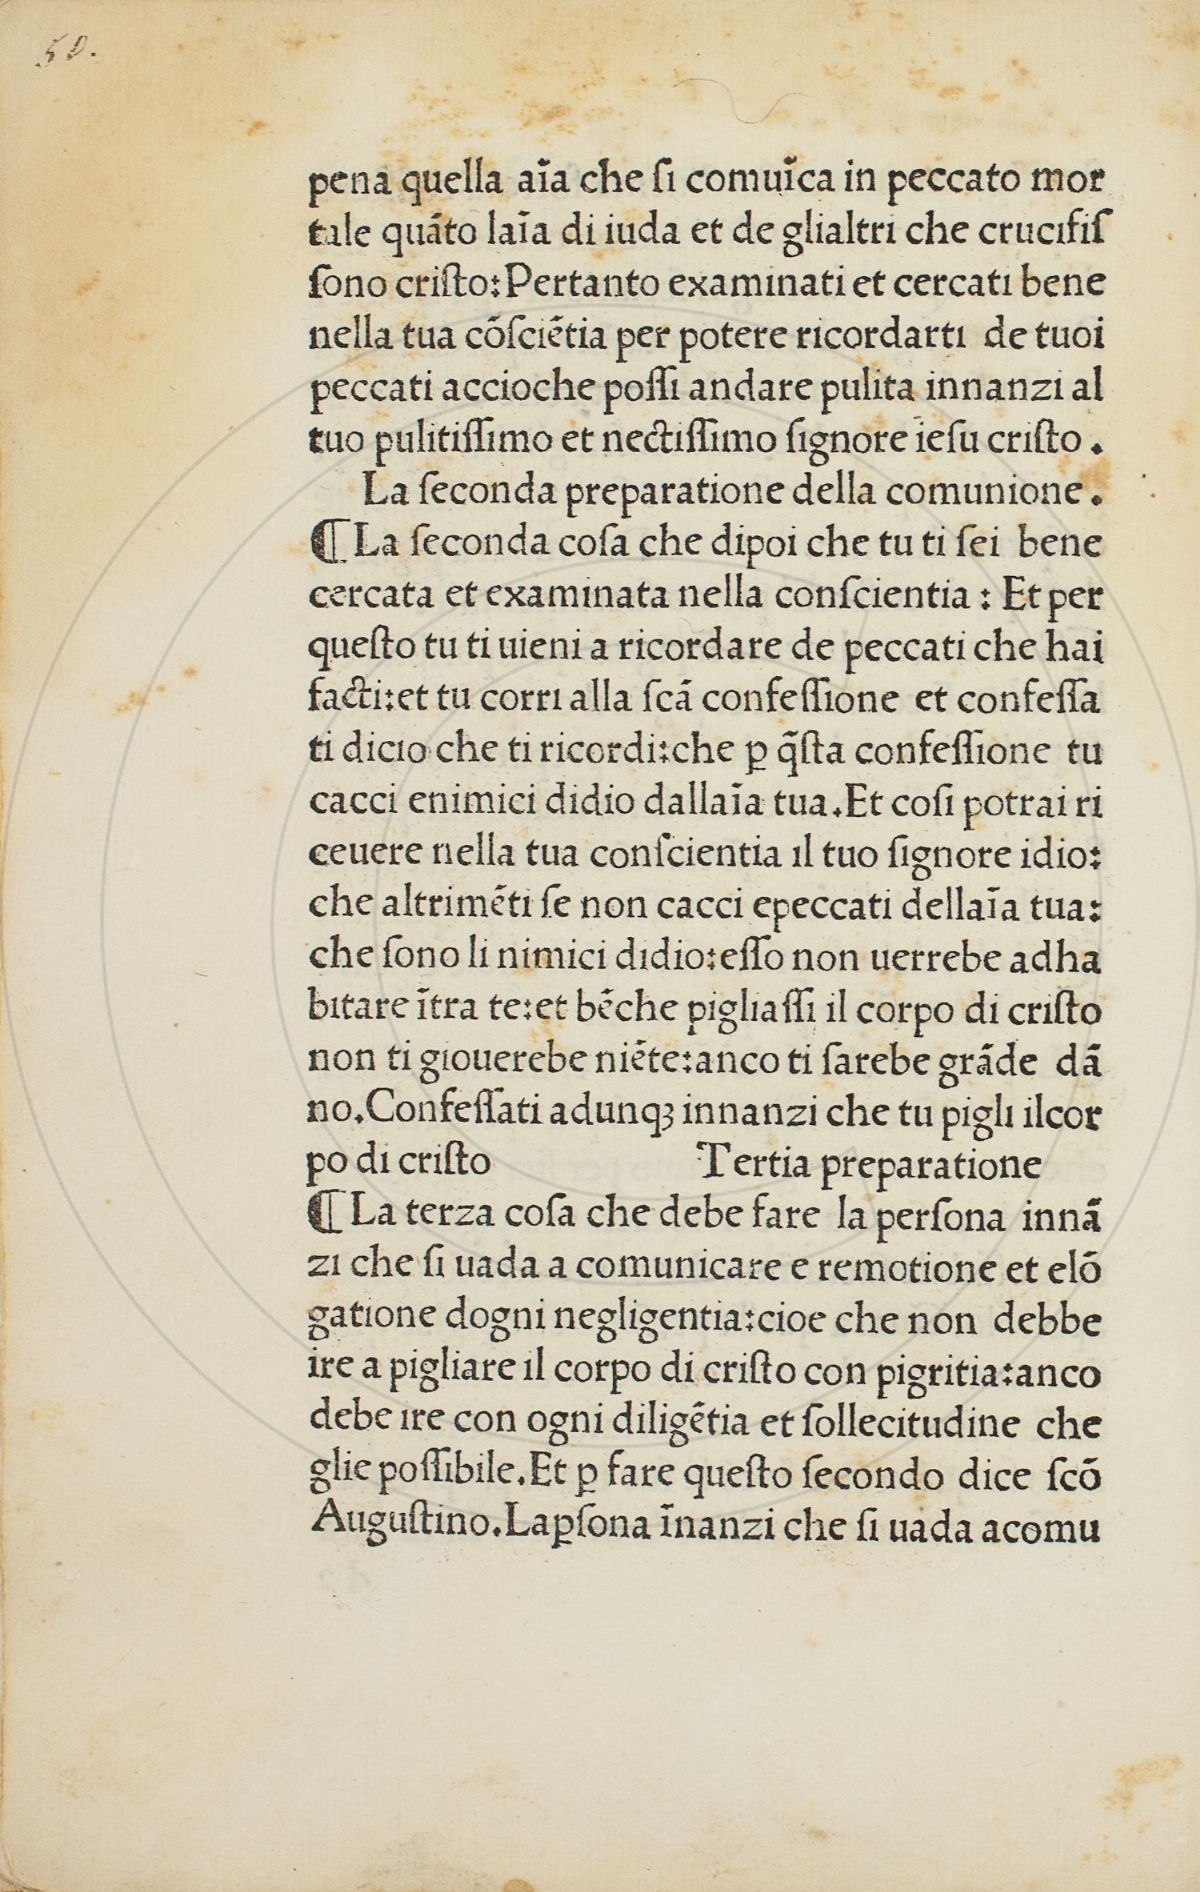 50.
pena quella aīa che ſi comuīca in peccato mor
tale quāto laīa di iuda et de glialtri che crucifiſ
ſono criſto:Pertanto examinati et cercati bene
nella tua cōſciētia per potere ricordarti de tuoi
peccati accioche poſſi andare pulita innanzi al
tuo pulitiſſimo et nectiſſimo ſignore ieſu criſto.
La ſeconda preparatione della comunione.
¶ La ſeconda coſa che dipoi che tu ti ſei bene
cercata et examinata nella conſcientia : Et per
queſto tu ti uieni a ricordare de peccati che hai
facti:et tu corri alla ſcā confeſſione et confeſſa
ti dicio che ti ricordi:che ꝑ q̄ſta confeſſione tu
cacci enimici didio dallaīa tua.Et coſi potrai ri
ceuere nella tua conſcientia il tuo ſignore idio:
che altrimēti ſe non cacci epeccati dellaīa tua:
che ſono li nimici didio:eſſo non uerrebe adha
bitare ītra te:et bēche pigliaſſi il corpo di criſto
non ti giouerebe niēte:anco ti ſarebe grāde dā
no.Confeſſati adunqꝫ innanzi che tu pigli ilcor
po di criſto Tertia preparatione
¶ La terza coſa che debe fare la perſona innā
zi che ſi uada a comunicare e remotione et elō
gatione dogni negligentia:cioe che non debbe
ire a pigliare il corpo di criſto con pigritia:anco
debe ire con ogni diligētia et ſollecitudine che
glie poſſibile.Et ꝑ fare queſto ſecondo dice ſcō
Auguſtino.Laꝑſona īnanzi che ſi uada acomu